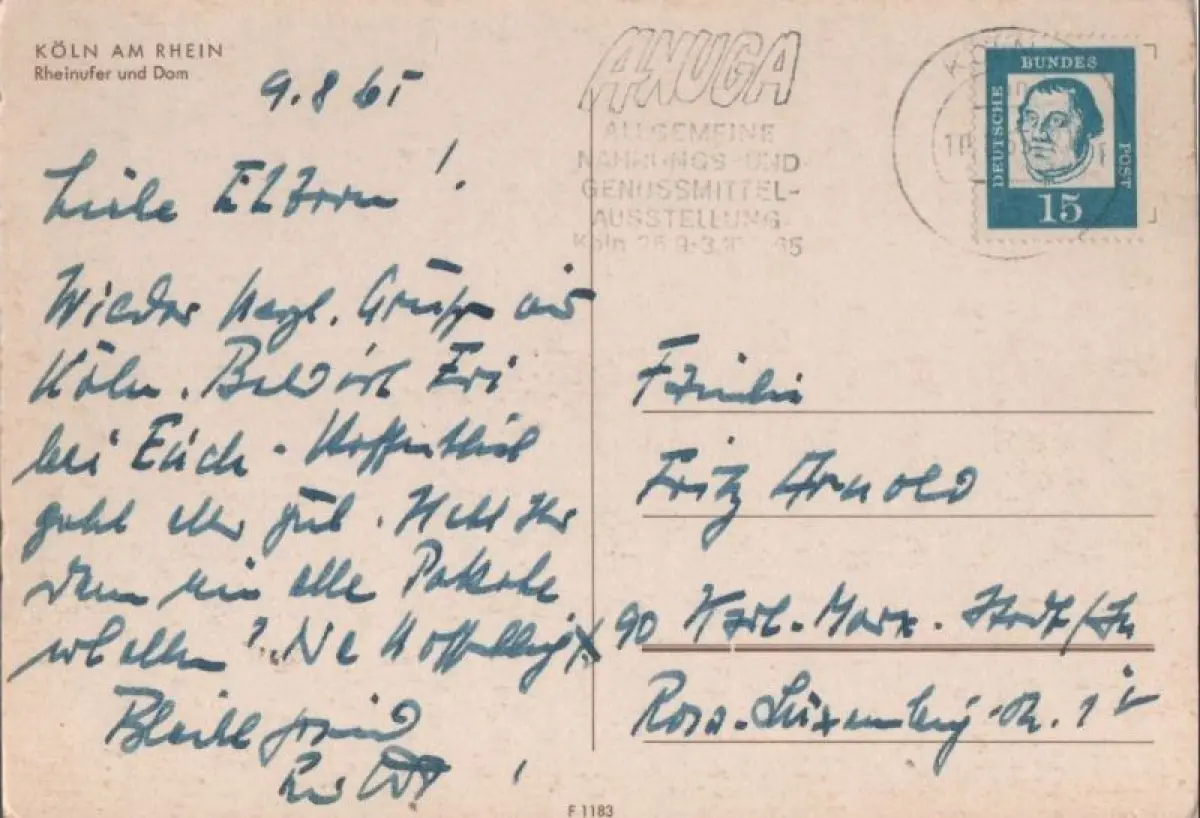 KÖLN AM RHEIN
Rheinufer und Dom
9.8 65
Liebe Eltern!
Wieder herzl. Grüße aus
Köln. Bald ist Eri
bei Euch. Hoffentlich
geht alles gut. Habt Ihr
denn nun alle Pakete
erhalten? Na hoffentlich
Bleibt gesund
ANUGA
ALLGEMEINE
NAHRUNGS-UND
GENUSSMITTEL-
AUSSTELLUNG
Köln 25.9-3.10.65
KÖLN
DEUTSCHE
BUNDES
POST
15
Familie
Fritz Arnold
90 Karl-Marx-Stadt/
Rosa-Luxemburg-Str. 1
F 1183